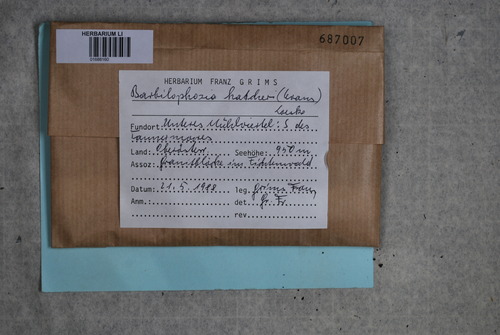 HERBARIUM LI
687007
HERBARIUM FRANZ GRIMS
Barbilophozia hatcheri (Evans)
Loeske
Fundort: Unteres Mühlviertel: S des
Land: Oberösterr. Seehöhe: 950 m
Assoz: Granitblöcke im Fichtenwald
Datum: 21.5.1988 leg. Grims Franz
Anm.: det. Gr. Fr.
rev.